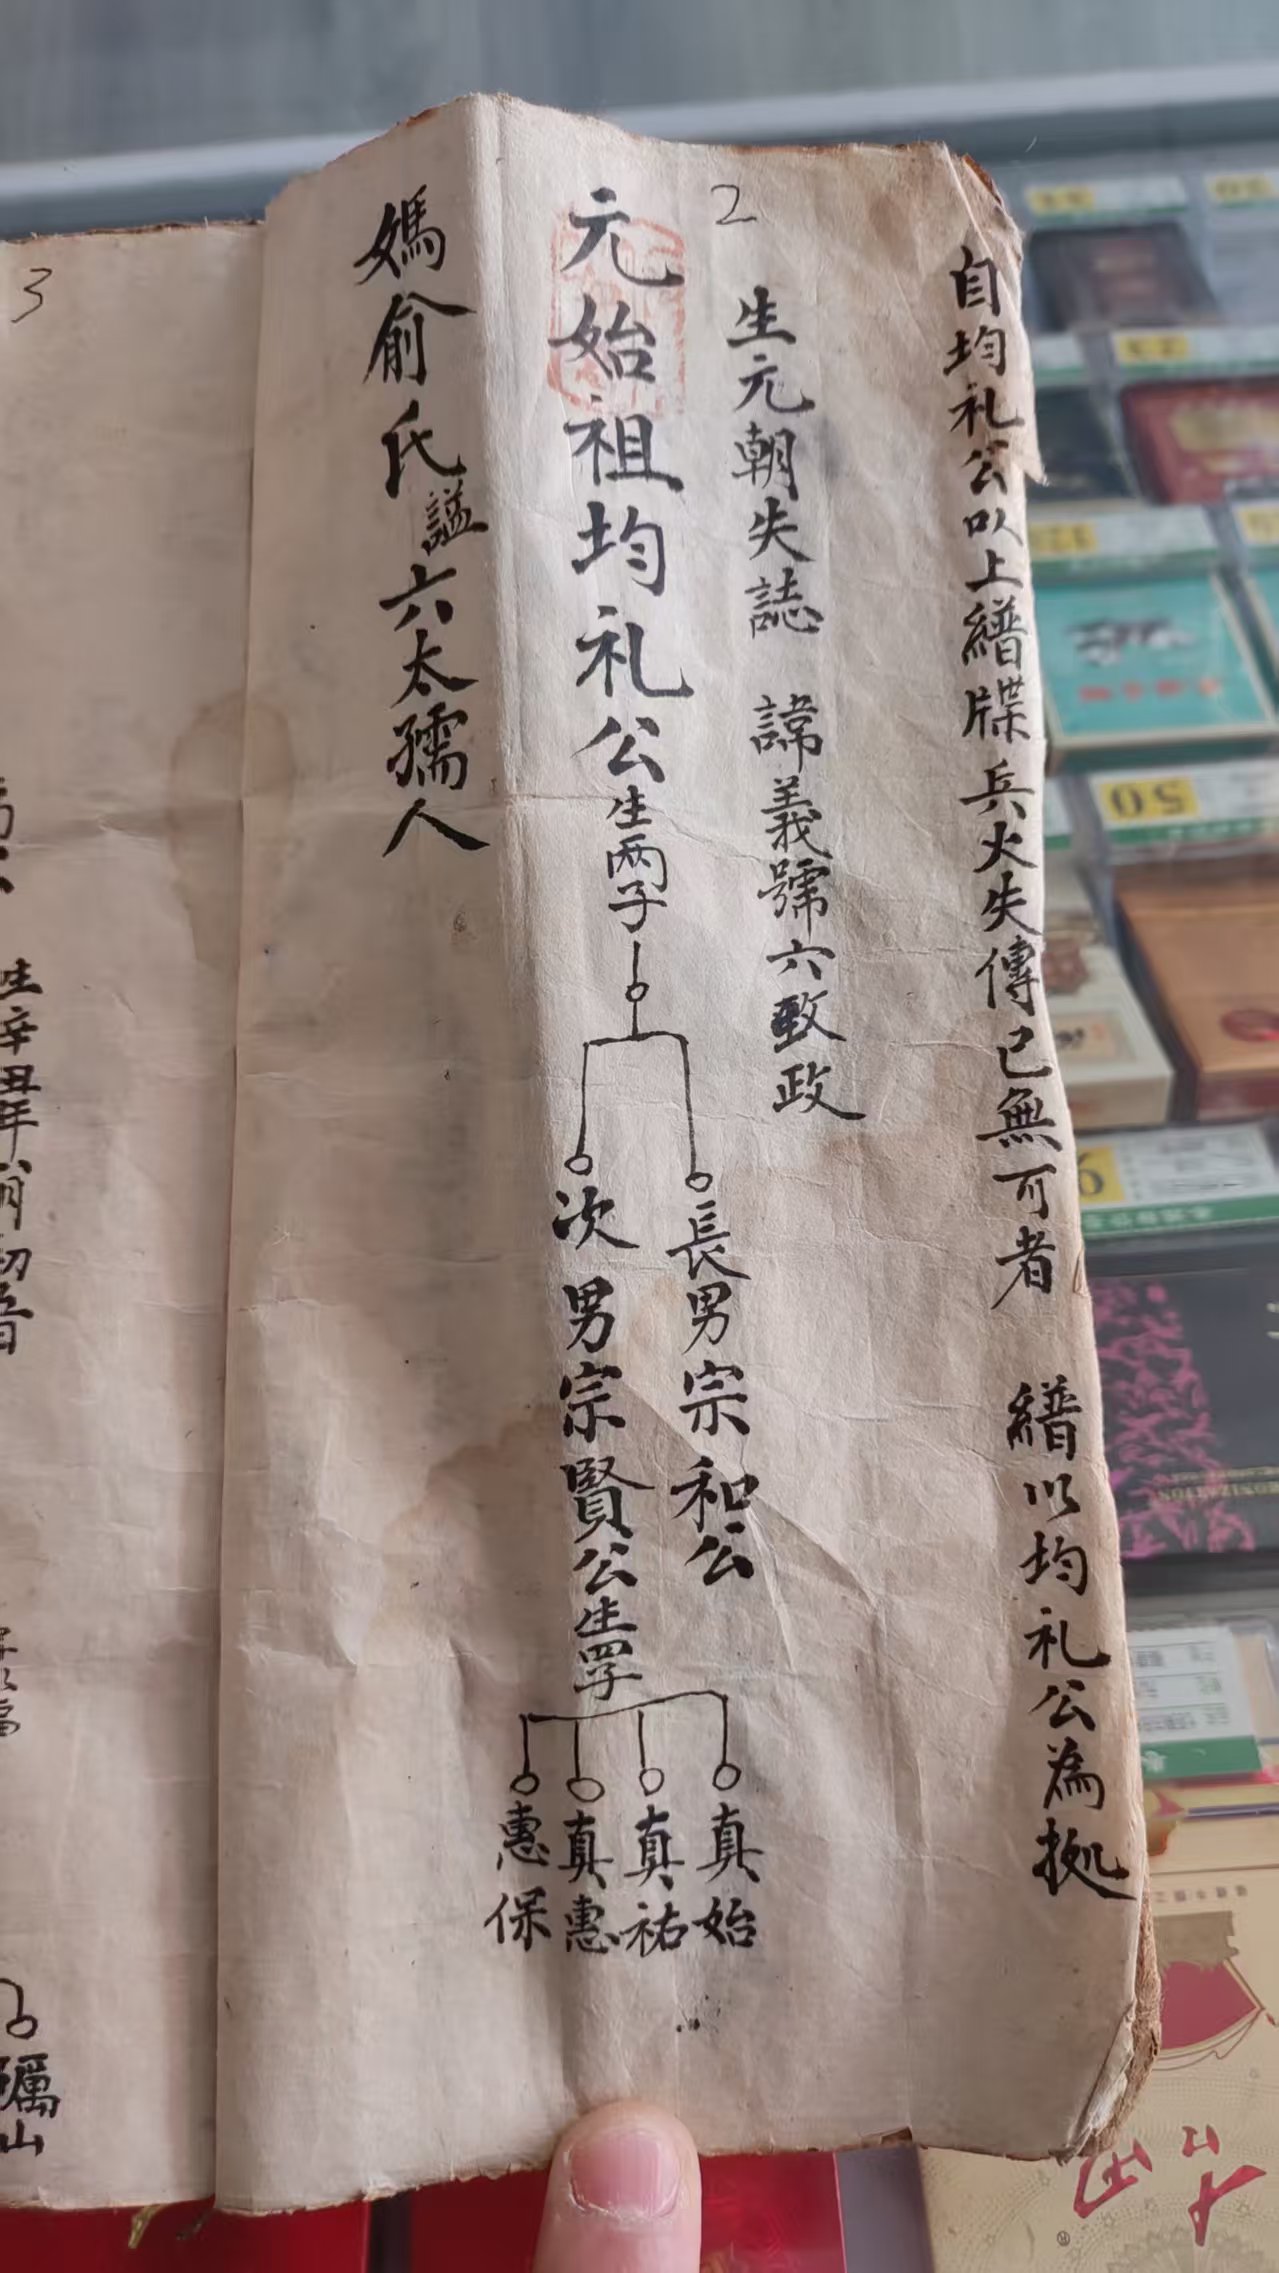 自均礼公以上繙牒兵火失傳已無可者 繙以均礼公為拠
2
生元朝失誌 諱義號六致政
元始祖均礼公生兩子
長男宗和公
次男宗賢公生四子
真始
真祐
真惠
惠保
媽俞氏謚六太孺人
3
50